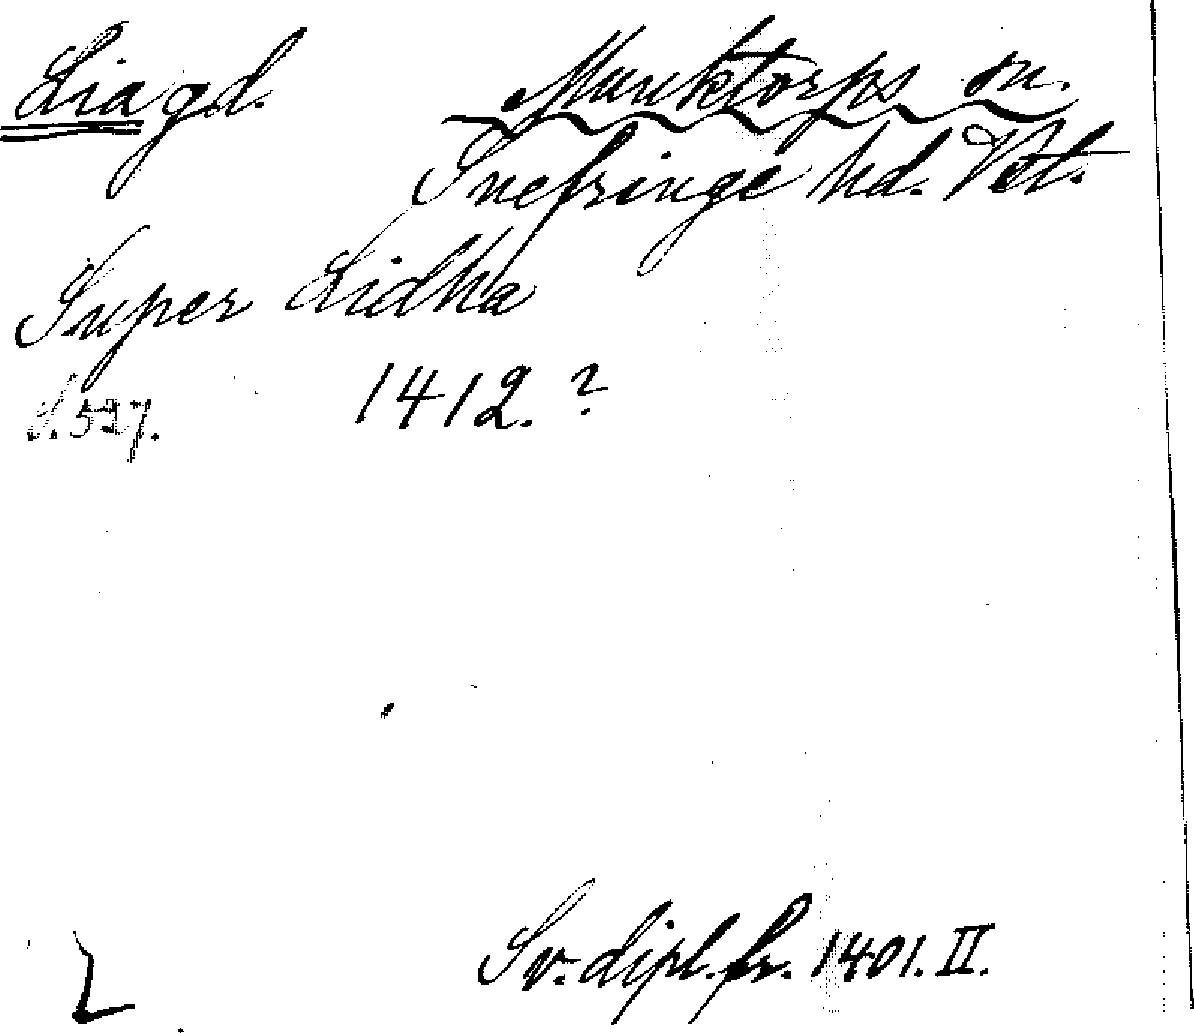 Lia gd. Munktorps sn.
Snefringe hd. Vstl.
Super Lidha
S. 527. 1412. ?
Sv. dipl. fr. 1401. II.